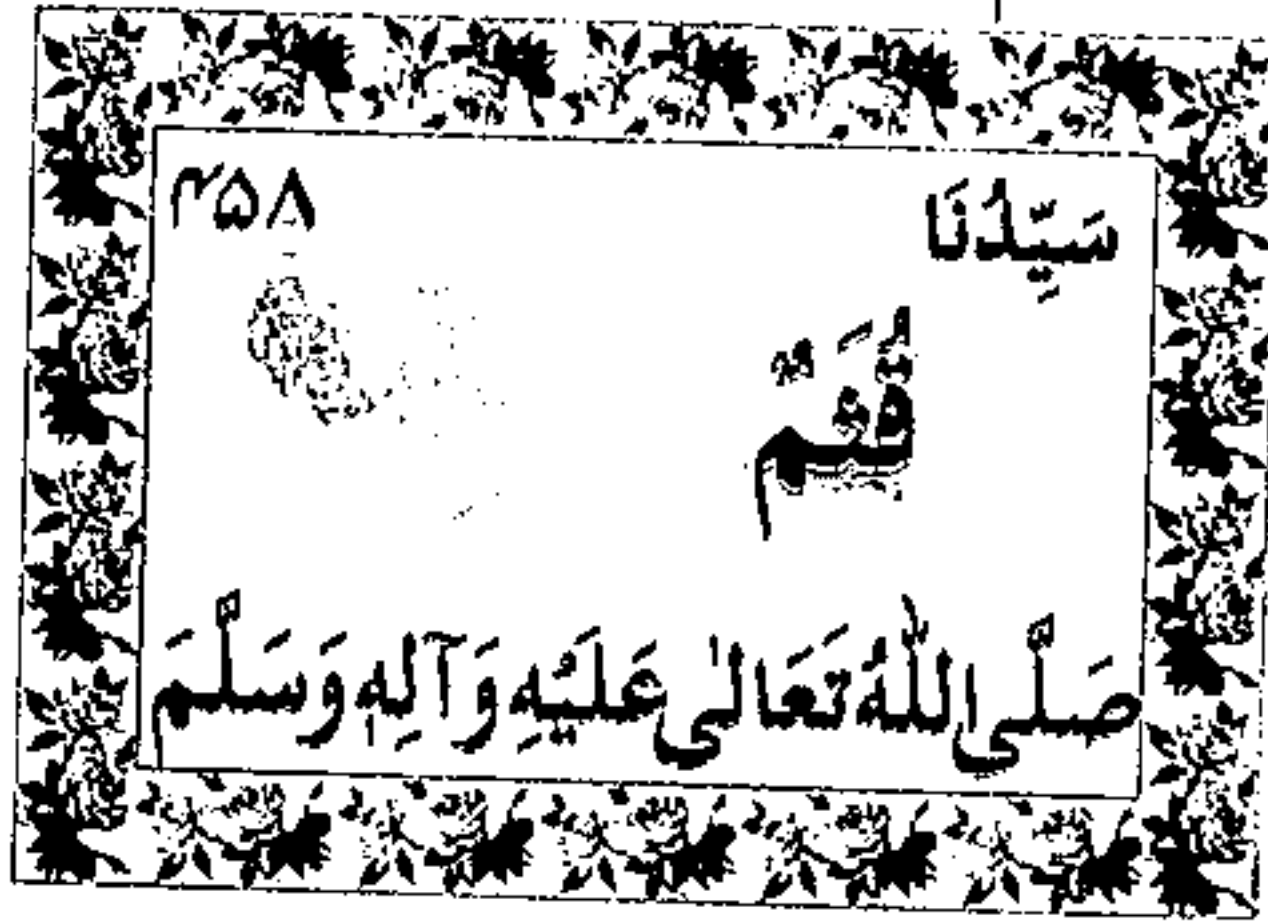 سَيِّدُنَا ۴۵۸
قُثَمٌ
صَلَّى اللّٰهُ تَعَالٰى عَلَيْهِ وَآلِهٖ وَسَلَّمَ